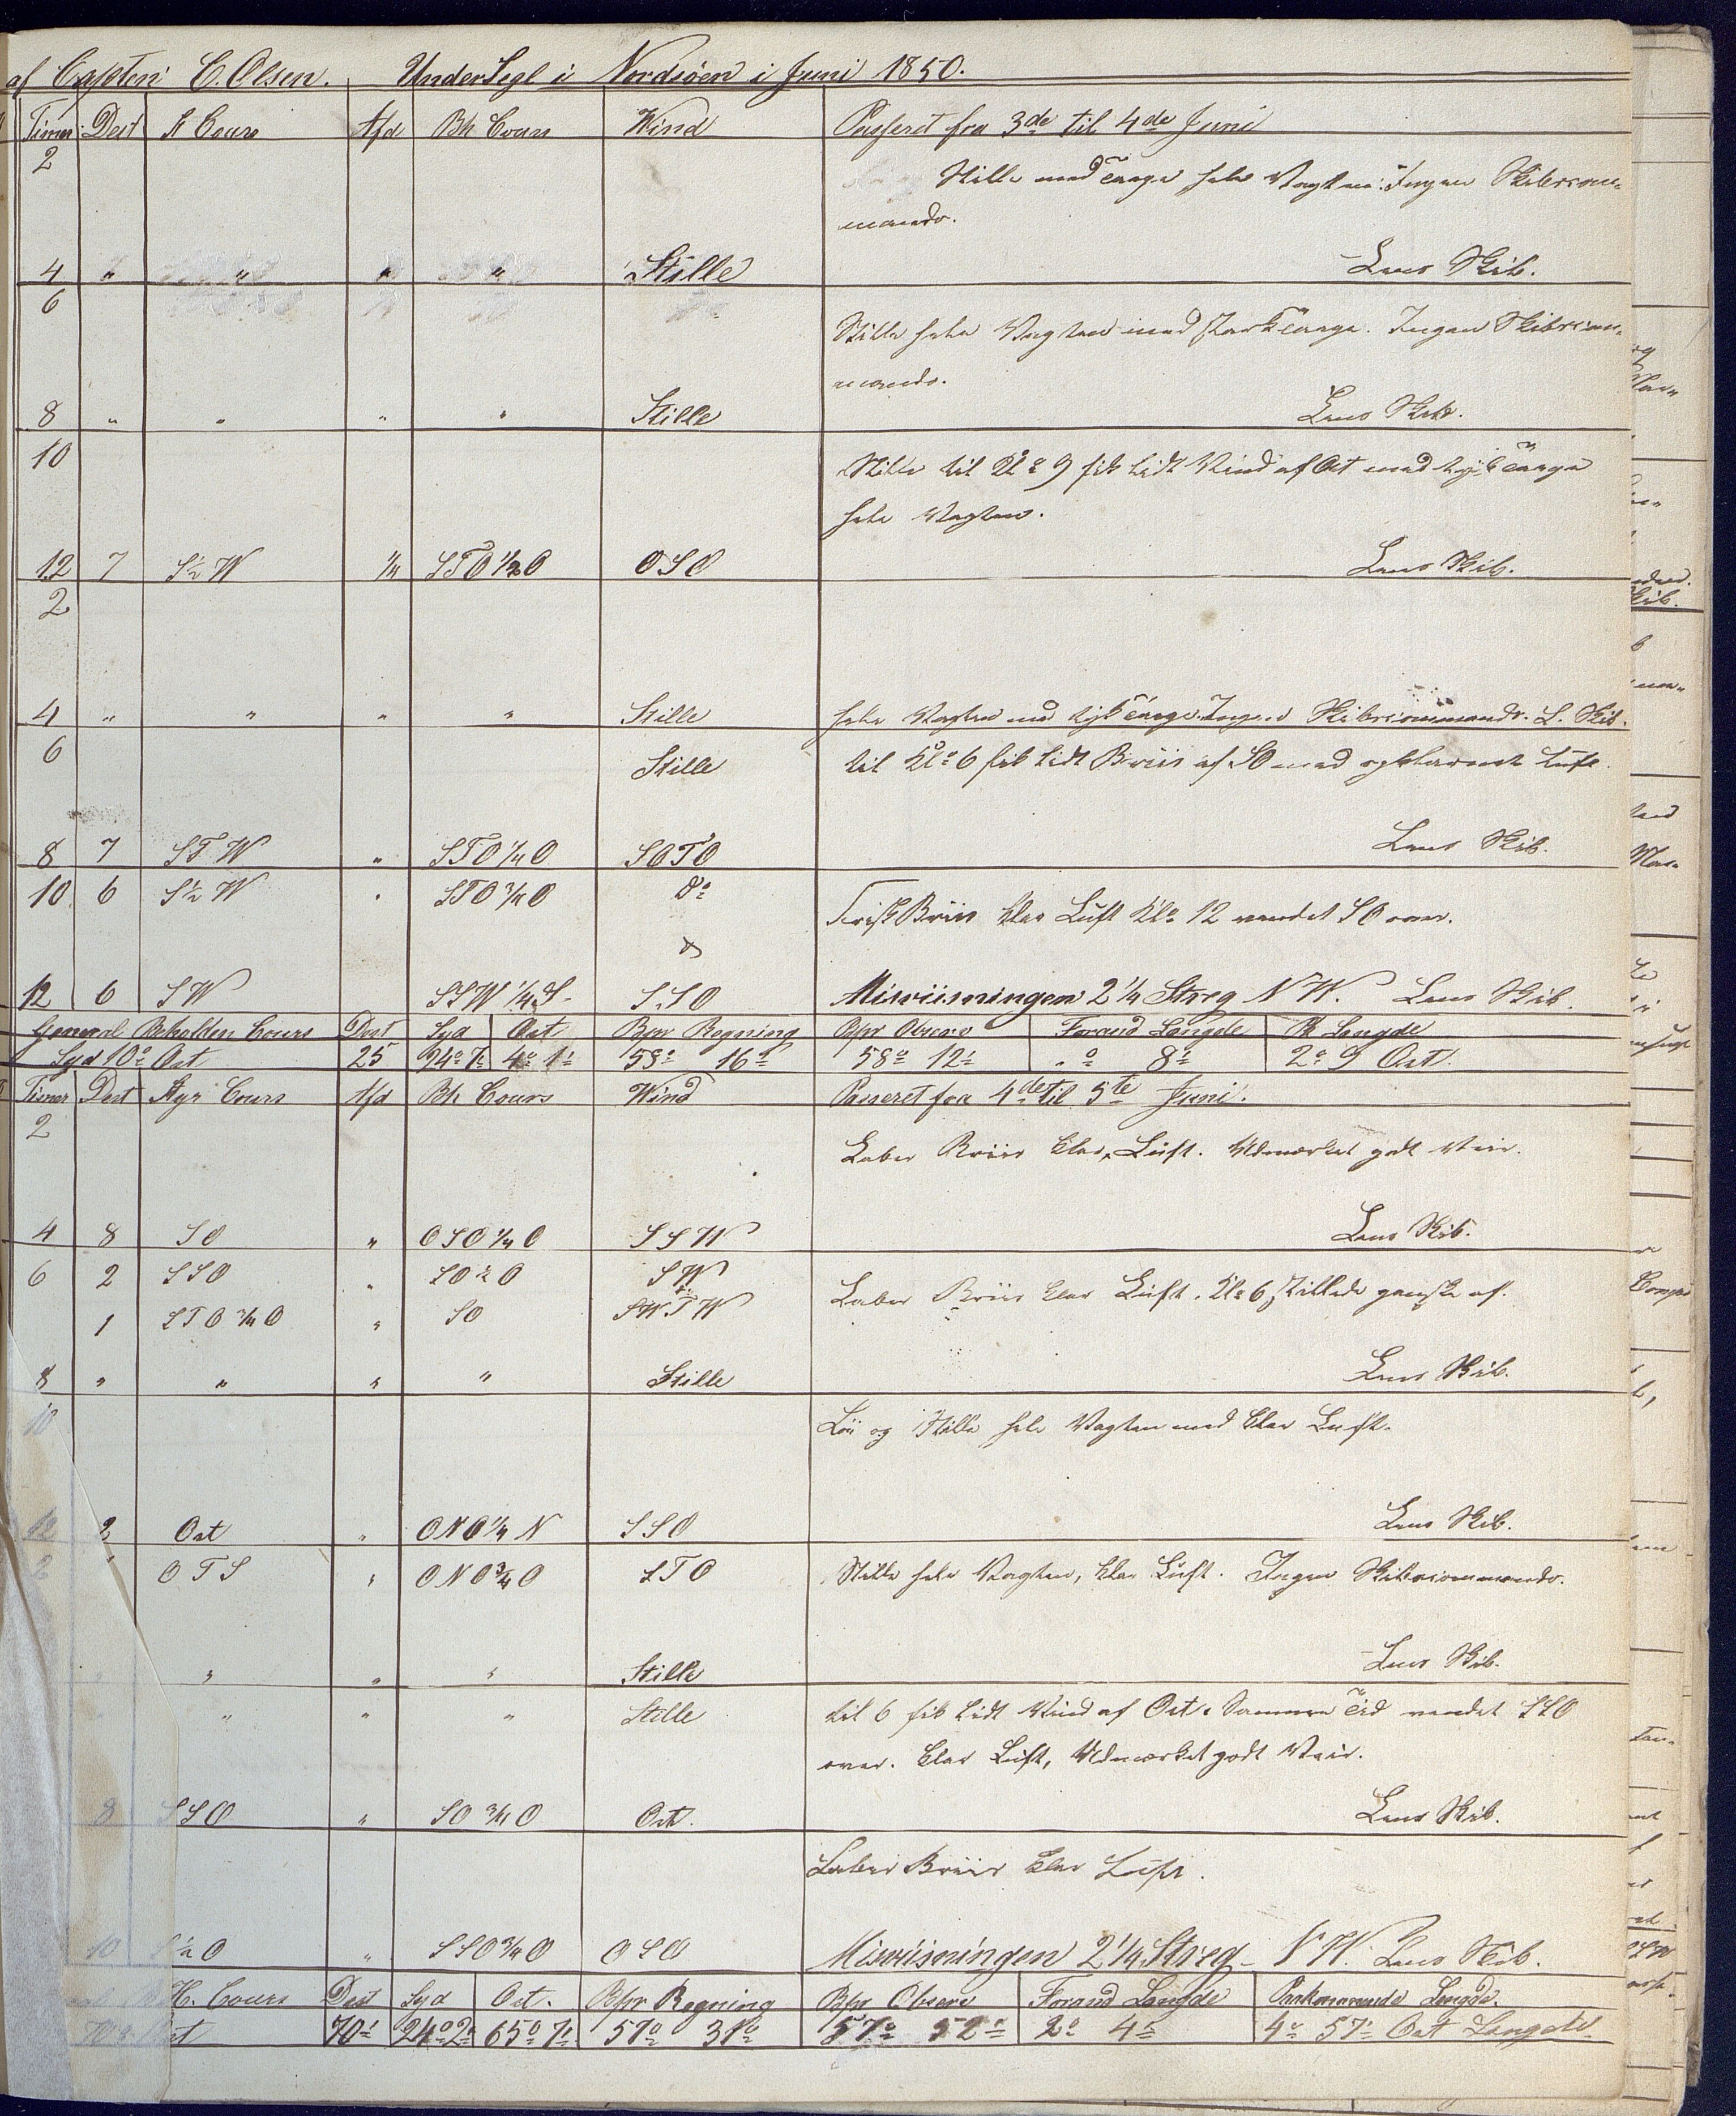 af Capten C. Olsen. Under Segl i Nordsöen i Juni 1850.
Timer Dest St Cours Afd Bh Cours Wind Passeret fra 3de til 4de Juni
2 Stille med Taage hele Vagten. Ingen Skibscom-
mando.
4 " " " " Stille Lens Skib.
6 Stille hele Vagten med stærk Taage. Ingen Skibscom-
mando.
8 " " " " Stille Lens Skib.
10 Stille til Kl: 9 fik lidt Wind af Ost med tyk Taage
hele Vagten.
12 7 S½W ¼ STO½O OSO Lens Skib.
2
4 " " " " Stille hele Vagten med tyk Taage. Ingen Skibscommando. L. Skib.
6 Stille til Kl: 6 fik lidt Briis af SO med opklarende Luft.
8 7 STW " STO¼O SOTO Lens Skib.
10 6 S½W " STO¾O Do Frisk Briis klar Luft Kl: 12 vendet SO over.
12 6 SW SSW¼S. SSO Misviisningen 2¼ Streg NW. Lens Skib.
General Beholden Cours Dest Syd Ost Bpr Regning Bpr Observ Forand Længde Længde
Syd 10° Ost 25 24° 7' 4° 1' 58° 16' 58° 12' "° 8' 2° 9 Ost.
Timer Dest Styr Cours Afd Bh Cours Wind Passeret fra 4de til 5te Juni.
2 Laber Briis klar Luft. Udmærket godt Veir.
4 8 SO " OSO¼O SSW Lens Skib.
6 2 SSO " SO½O SW Laber Briis klar Luft. Kl: 6 stillede ganske af.
1 STO¾O " SO SWTW
8 " " " " Stille Lens Skib.
10 Löi og Stille hele Vagten med klar Luft.
12 2 Ost " ONO¼N SSO Lens Skib.
2 " OTS " ONO¾O STO Stille hele Vagten, klar Luft. Ingen Skibscommando.
" " " " Stille Lens Skib.
" " " Stille til 6 fik lidt Wind af Ost. Sammen Tid vendet SSO
over. Klar Luft, Udmærket godt Veir.
8 SSO " SO¾O Ost. Lens Skib.
Laber Briis klar Luft.
10 S½O " SSO¾O OSO Misviisningen 2¼ Streg NW. Lens Skib.
H. Cours Dest Syd Ost. Bpr Regning Bpr Observ Forand Længde Paakommende Længde.
70° Ost 70' 24° 2' 65° 7' 57° 31' 57° 52' 2° 4' 4° 57' Ost Længde